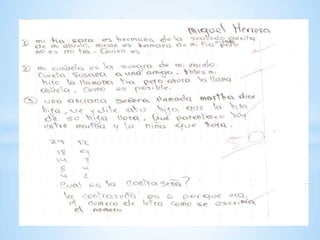 Miguel Herrera
① mi tia sara es hermana de la
de mi abuelo. mirian es hermana de mi tia pero
no es mi tia. Quien es
② mi cuñada es la suegra de mi
Cuñada Susana a una amiga,
hijo la llamaba tia pero ahora la llama
abuela, Como es posible.
③ una anciana señora llamada martha dice
hija, ve y dile a tu hija que la hija
de su hija llora, Que parentesco hay
entre martha y la niña que llora.
24 12
18 9
14 7
8 4
4 2
Cual es la contraseña?
la contraseña es 6 porque era
el numero de letra como se escribia
el numero